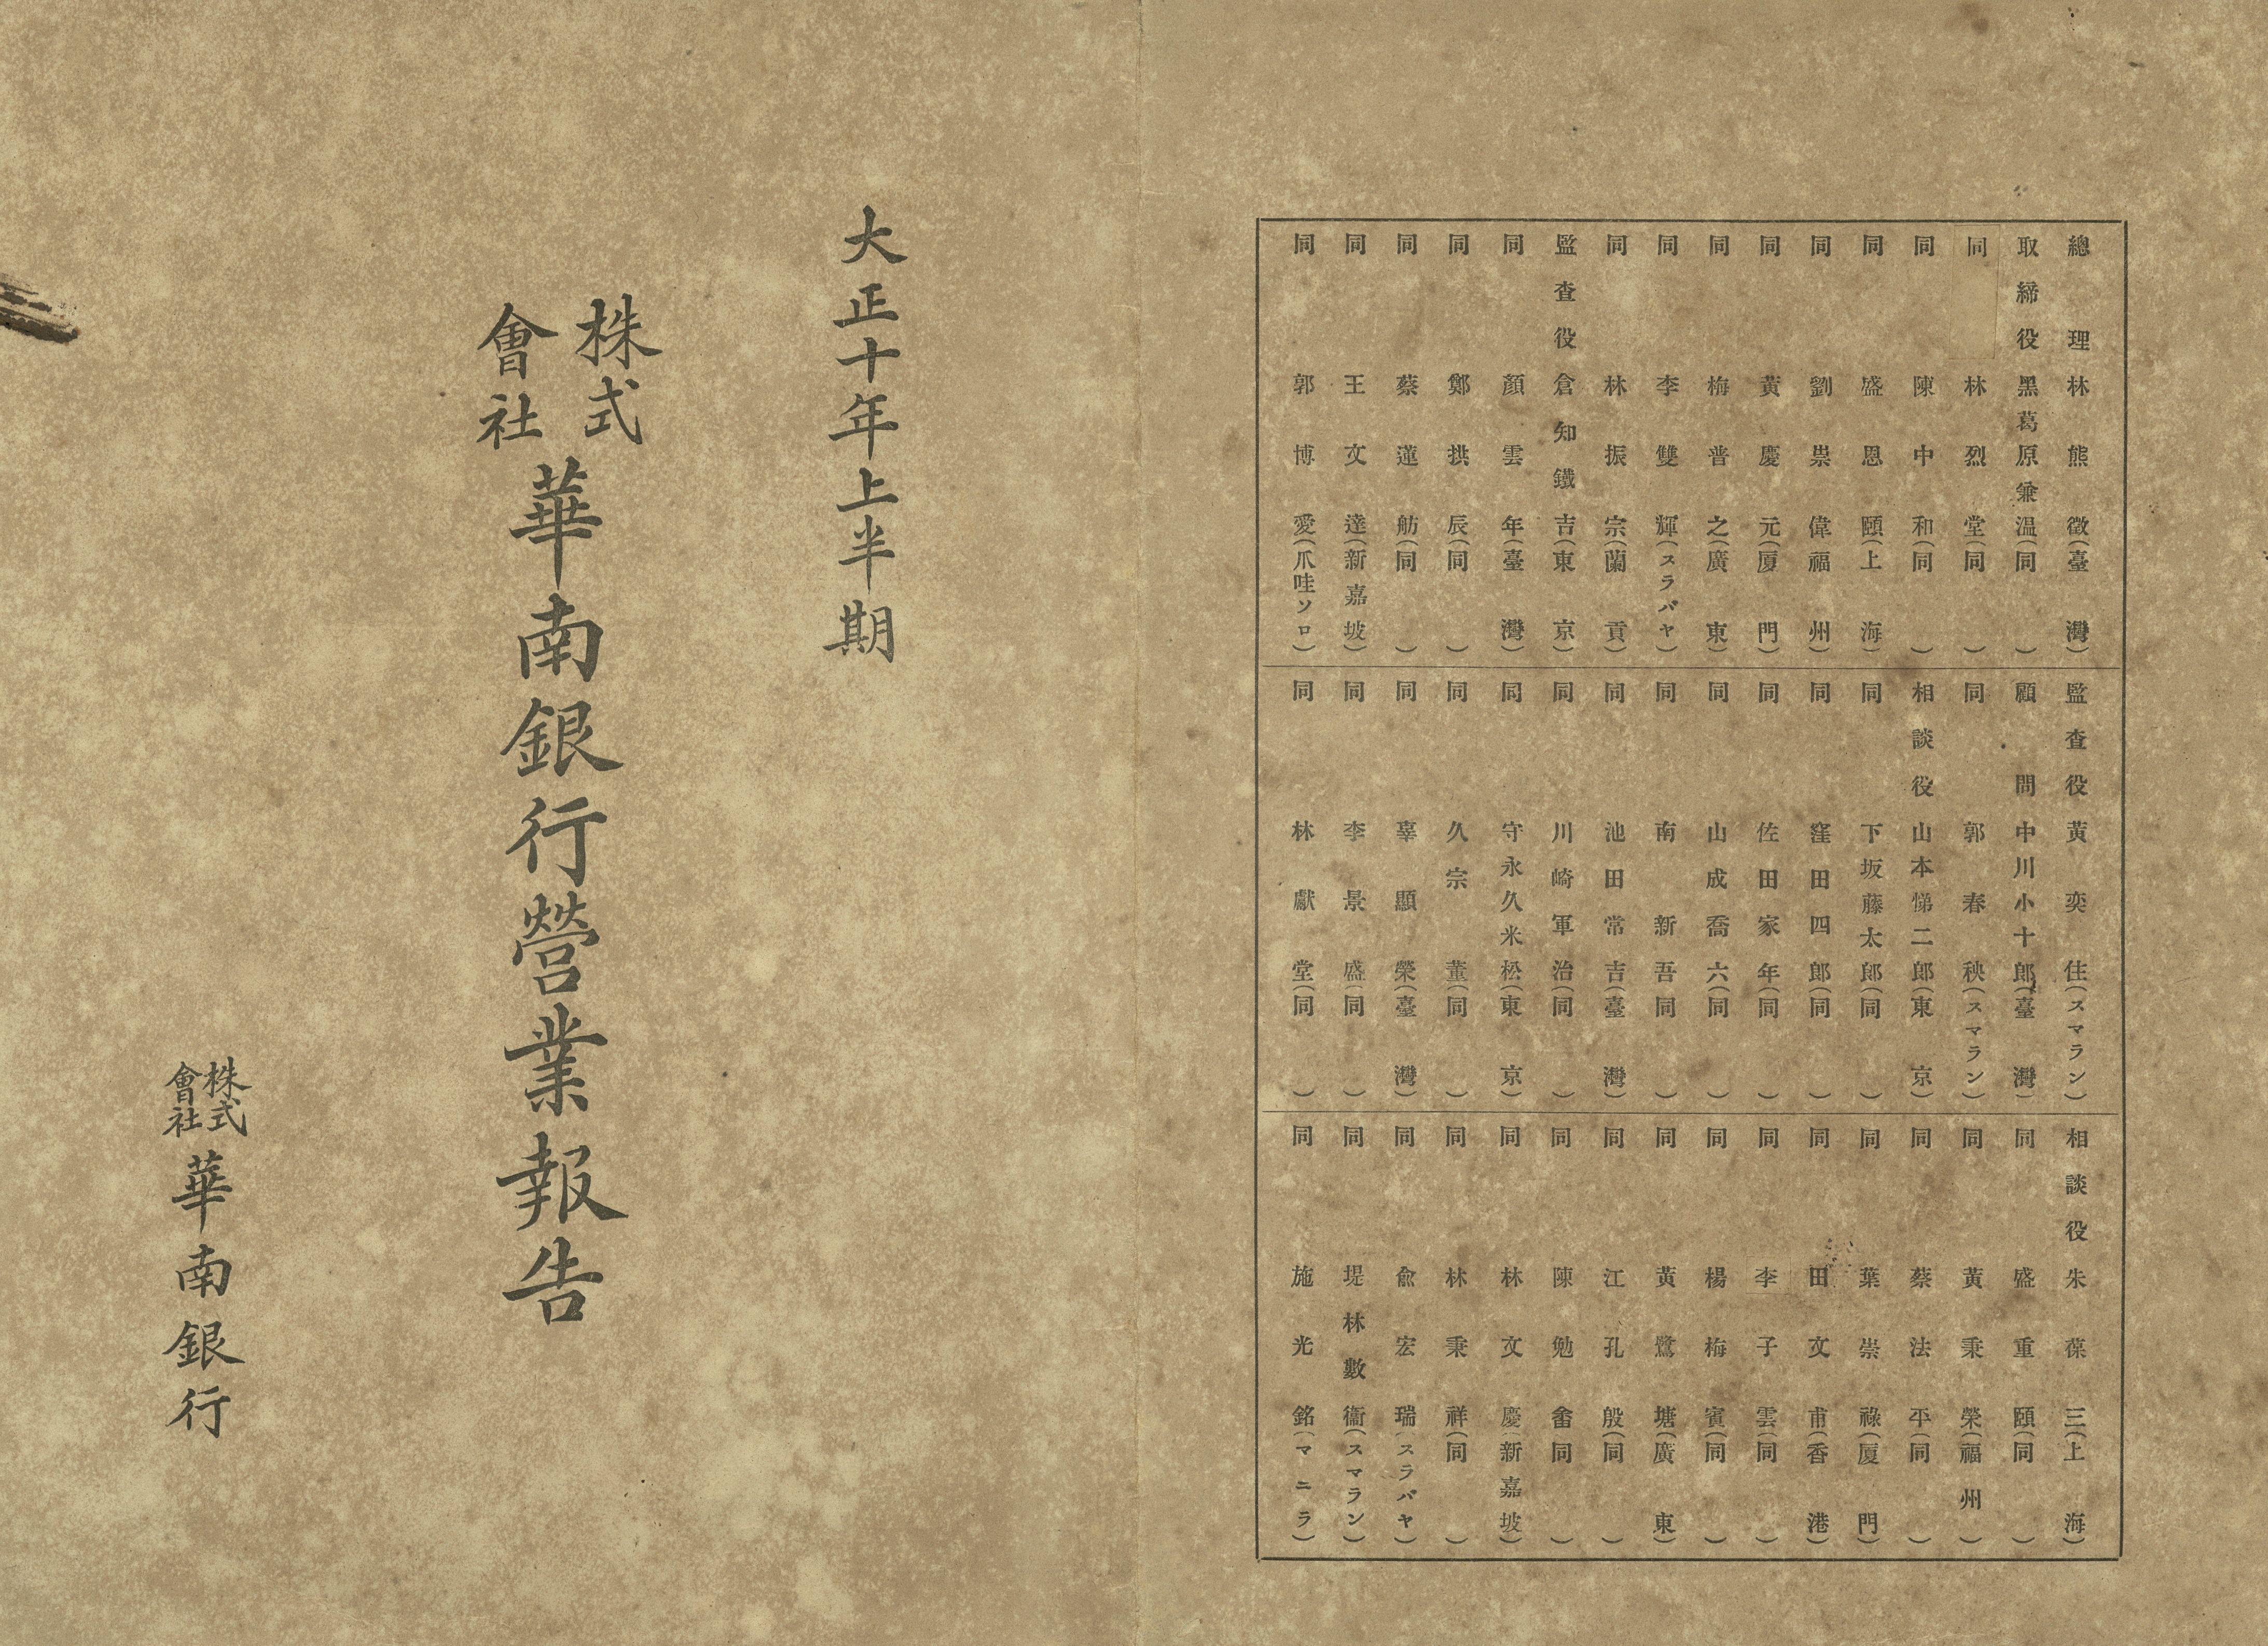 總理 林熊徵(臺灣)
取締役 黑葛原兼温(同)
同 林烈堂(同)
同 陳中和(同)
同 盛恩頤(上海)
同 劉崇偉(福州)
同 黃慶元(厦門)
同 梅普之(廣東)
同 李雙輝(スラバヤ)
同 林振宗(蘭貢)
監査役 倉知鐵吉(東京)
同 顏雲年(臺灣)
同 鄭拱辰(同)
同 蔡蓮舫(同)
同 王文達(新嘉坡)
同 郭博愛(爪哇ソロ)
監査役 黃奕住(スマラン)
顧問 中川小十郎(臺灣)
同 郭春秧(スマラン)
相談役 山本悌二郎(東京)
同 下坂藤太郎(同)
同 窪田四郎(同)
同 佐田家年(同)
同 山成喬六(同)
同 南新吾(同)
同 池田常吉(臺灣)
同 川崎軍治(同)
同 守永久米松(東京)
同 久宗董(同)
同 辜顯榮(臺灣)
同 李景盛(同)
同 林獻堂(同)
相談役 朱葆三(上海)
同 盛重頤(同)
同 黃秉榮(福州)
同 蔡法平(同)
同 葉崇祿(厦門)
同 田文甫(香港)
同 李子雲(同)
同 楊梅賓(同)
同 黃鷺塘(廣東)
同 江孔殷(同)
同 陳勉畬(同)
同 林文慶(新嘉坡)
同 林秉祥(同)
同 兪宏瑞(スラバヤ)
同 堤林數衞(スマラン)
同 施光銘(マニラ)
大正十年上半期
株式會社華南銀行營業報告
株式會社華南銀行